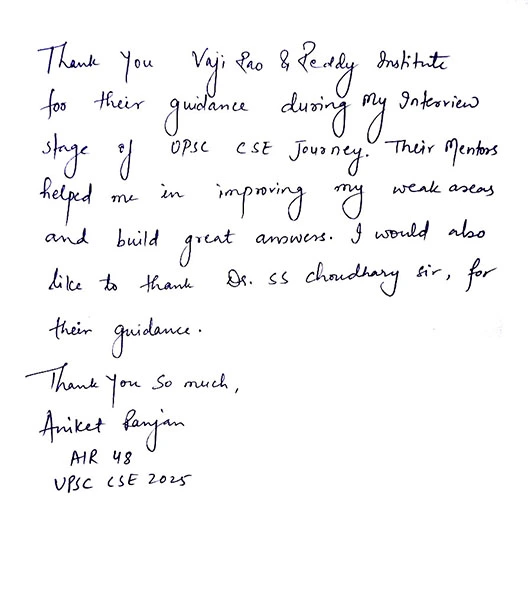 Thank You Vaji Rao & Reddy Institute
for their guidance during My Interview
stage of UPSC CSE Journey. Their Mentors
helped me in improving my weak areas
and build great answers. I would also
like to thank Dr. SS Choudhary sir, for
their guidance.
Thank You So much,
Aniket Ranjan
AIR 48
UPSC CSE 2025